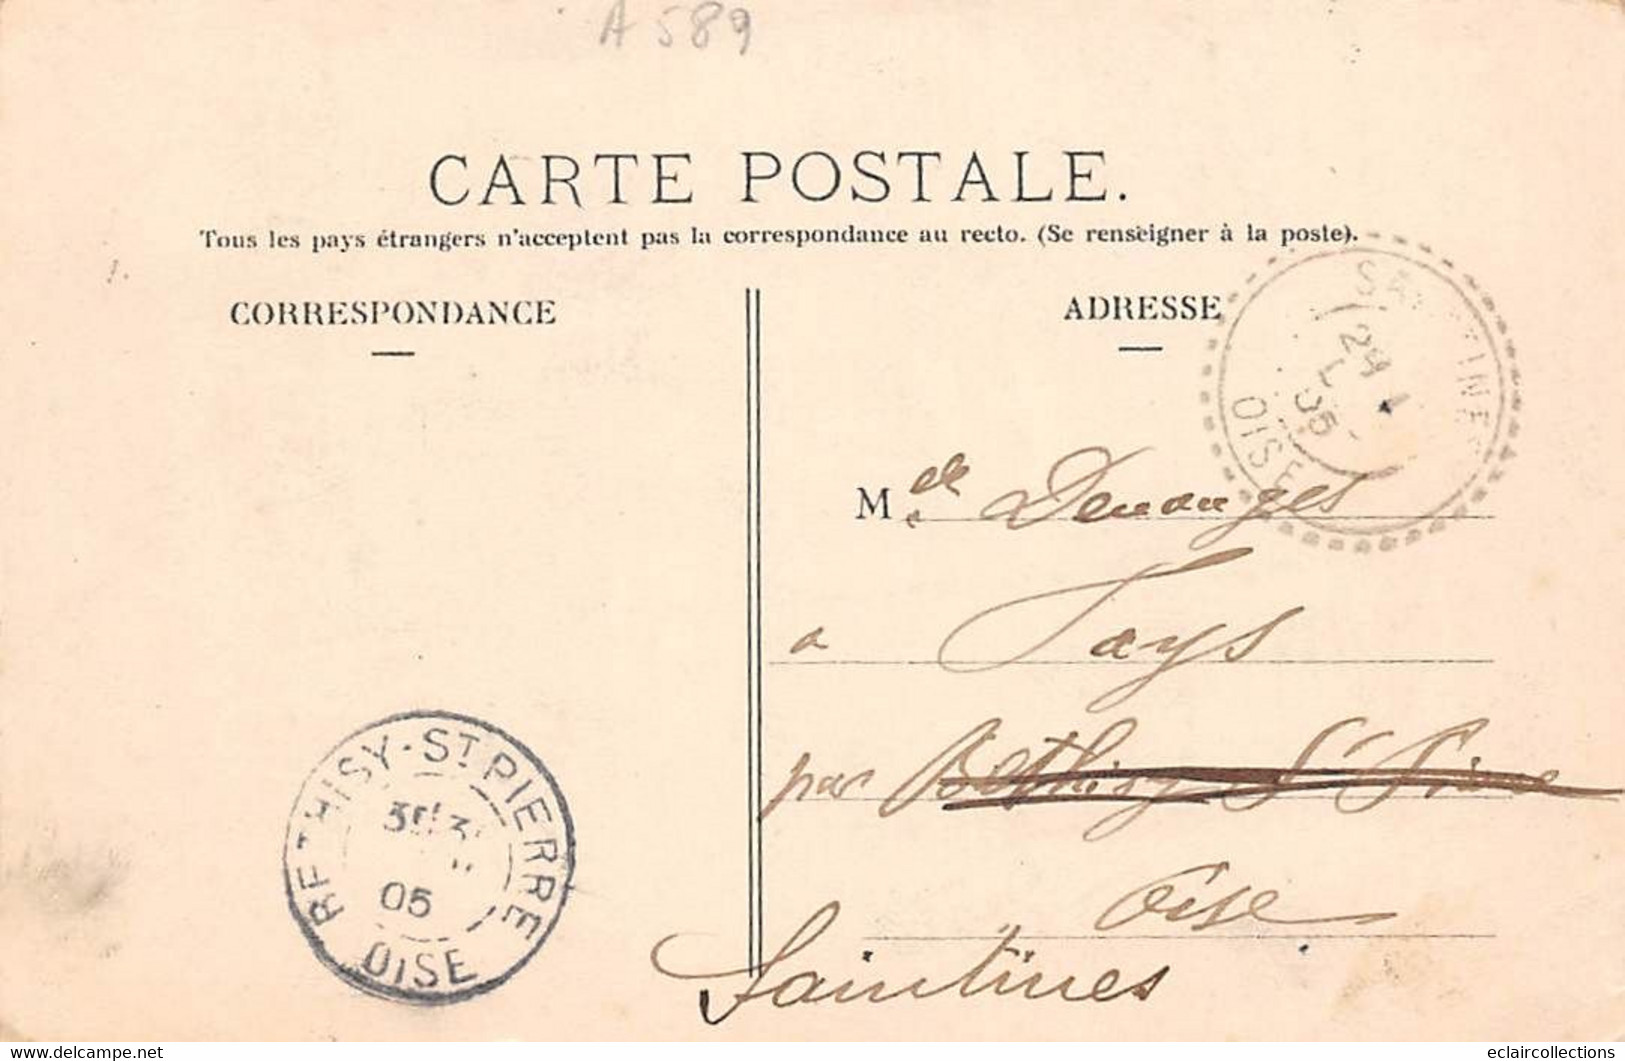 A 589
CARTE POSTALE.
Tous les pays étrangers n'acceptent pas la correspondance au recto. (Se renseigner à la poste).
CORRESPONDANCE
ADRESSE
SAINTINES
05
OISE
Melle Denanges
a Says
par Béthisy St Pierre
Oise
Saintines
BETHISY-ST PIERRE
05
OISE
www.delcampe.net
eclaircollections